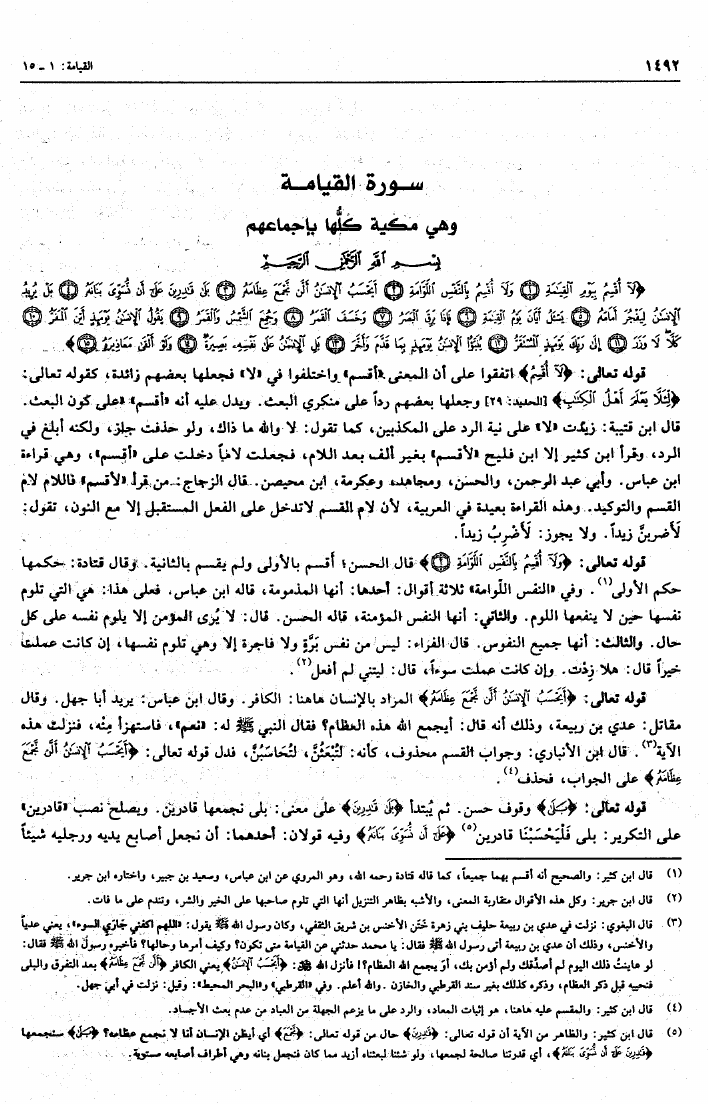 ١٤٩٢
القيامة: ١ ـ ١٥
سـورة القيامـة
وهي مكية كلُّها بإجماعهم
بِسْمِ اللَّهِ الرَّحْمَنِ الرَّحِيمِ
﴿لَا أُقْسِمُ بِيَوْمِ الْقِيَامَةِ ١ وَلَا أُقْسِمُ بِالنَّفْسِ اللَّوَّامَةِ ٢ أَيَحْسَبُ الْإِنْسَانُ أَلَّنْ نَجْمَعَ عِظَامَهُ ٣ بَلَى قَادِرِينَ عَلَى أَنْ نُسَوِّيَ بَنَانَهُ ٤ بَلْ يُرِيدُ
الْإِنْسَانُ لِيَفْجُرَ أَمَامَهُ ٥ يَسْأَلُ أَيَّانَ يَوْمُ الْقِيَامَةِ ٦ فَإِذَا بَرِقَ الْبَصَرُ ٧ وَخَسَفَ الْقَمَرُ ٨ وَجُمِعَ الشَّمْسُ وَالْقَمَرُ ٩ يَقُولُ الْإِنْسَانُ يَوْمَئِذٍ أَيْنَ الْمَفَرُّ ١٠
كَلَّا لَا وَزَرَ ١١ إِلَى رَبِّكَ يَوْمَئِذٍ الْمُسْتَقَرُّ ١٢ يُنَبَّأُ الْإِنْسَانُ يَوْمَئِذٍ بِمَا قَدَّمَ وَأَخَّرَ ١٣ بَلِ الْإِنْسَانُ عَلَى نَفْسِهِ بَصِيرَةٌ ١٤ وَلَوْ أَلْقَى مَعَاذِيرَهُ ١٥﴾
قوله تعالى: ﴿لَا أُقْسِمُ﴾ اتفقوا على أن المعنى «أقسم» واختلفوا في «لا» فجعلها بعضهم زائدة، كقوله تعالى:
﴿لِئَلَّا يَعْلَمَ أَهْلُ الْكِتَابِ﴾ [الحديد: ٢٩] وجعلها بعضهم رداً على منكري البعث. ويدل عليه أنه «أقسم» «على كون البعث.
قال ابن قتيبة: زيدت «لا» على نية الرد على المكذبين، كما تقول: لا والله ما ذاك، ولو حذفت جاز، ولكنه أبلغ في
الرد، وقرأ ابن كثير إلا ابن فليح «لأقسم» بغير ألف بعد اللام، فجعلت لاماً دخلت على «أقسم»، وهي قراءة
ابن عباس. وأبي عبد الرحمن، والحسن، ومجاهد، وعكرمة، ابن محيصن. قال الزجاج: من قرأ «لأقسم» فاللام لام
القسم والتوكيد. وهذه القراءة بعيدة في العربية، لأن لام القسم لاتدخل على الفعل المستقبل إلا مع النون، تقول:
لأضربنَّ زيداً. ولا يجوز: لأضْرِبُ زيداً.
قوله تعالى: ﴿وَلَا أُقْسِمُ بِالنَّفْسِ اللَّوَّامَةِ ٢﴾ قال الحسن: أقسم بالأولى ولم يقسم بالثانية. وقال قتادة: حكمها
حكم الأولى(١). وفي «النفس اللّوامة» ثلاثة أقوال: أحدها: أنها المذمومة، قاله ابن عباس، فعلى هذا: هي التي تلوم
نفسها حين لا ينفعها اللوم. والثاني: أنها النفس المؤمنة، قاله الحسن. قال: لا يُرى المؤمن إلا يلوم نفسه على كل
حال. والثالث: أنها جميع النفوس. قال الفراء: ليس من نفس بَرَّةٍ ولا فاجرة إلا وهي تلوم نفسها، إن كانت عملت
خيراً قال: هلا زِدْت. وإن كانت عملت سوءاً، قال: ليتني لم أفعل(٢).
قوله تعالى: ﴿أَيَحْسَبُ الْإِنْسَانُ أَلَّنْ نَجْمَعَ عِظَامَهُ﴾ المراد بالإنسان هاهنا: الكافر. وقال ابن عباس: يريد أبا جهل. وقال
مقاتل: عدي بن ربيعة، وذلك أنه قال: أيجمع الله هذه العظام؟ فقال النبي ﷺ له: «نعم»، فاستهزأ مِنْه، فنزلت هذه
الآية(٣). قال ابن الأنباري: وجواب القسم محذوف، كأنه: لَتُبْعَثُنَّ، لَتُحاسَبُنَّ، فدل قوله تعالى: ﴿أَيَحْسَبُ الْإِنْسَانُ أَلَّنْ نَجْمَعَ
عِظَامَهُ﴾ على الجواب، فحذف(٤).
قوله تعالى: ﴿بَلَى﴾ وقوف حسن. ثم يُبتدأ ﴿بَلَى قَادِرِينَ﴾ على معنى: بلى نجمعها قادرين. ويصلح نصب «قادرين»
على التكرير: بلى فَلْيَحْسَبْنَا قادرين(٥) ﴿عَلَى أَنْ نُسَوِّيَ بَنَانَهُ﴾ وفيه قولان: أحدهما: أن نجعل أصابع يديه ورجليه شيئاً
(١) قال ابن كثير: والصحيح أنه أقسم بهما جميعاً، كما قاله قتادة رحمه الله، وهو المروي عن ابن عباس، وسعيد بن جبير، واختاره ابن جرير.
(٢) قال ابن جرير: وكل هذه الأقوال متقاربة المعنى، والأشبه بظاهر التنزيل أنها التي تلوم صاحبها على الخير والشر، وتندم على ما فات.
(٣) قال البغوي: نزلت في عدي بن ربيعة حليف بني زهرة خَتَن الأخنس بن شريق الثقفي، وكان رسول الله ﷺ يقول: «اللهم اكفني جَارَي السوء»، يعني عدياً
والأخنس، وذلك أن عدي بن ربيعة أتى رسول الله ﷺ فقال: يا محمد حدثني عن القيامة متى تكون؟ وكيف أمرها وحالها؟ فأخبره رسول الله ﷺ فقال:
لو عاينتُ ذلك اليوم لم أصدِّقك ولم أؤمن بك، أوَ يجمع الله العظام؟! فأنزل الله ﷻ: ﴿أَيَحْسَبُ الْإِنْسَانُ﴾ يعني الكافر ﴿أَلَّنْ نَجْمَعَ عِظَامَهُ﴾ بعد التفرق والبلى
فنحييه قبل ذكر العظام، وذكره كذلك بغير سند القرطبي والخازن. والله أعلم. وفي «القرطبي» و«البحر المحيط»: وقيل: نزلت في أبي جهل.
(٤) قال ابن كثير: والمقسم عليه هاهنا، هو إثبات المعاد، والرد على ما يزعم الجهلة من العباد من عدم بعث الأجساد.
(٥) قال ابن كثير: والظاهر من الآية أن قوله تعالى: ﴿قَادِرِينَ﴾ حال من قوله تعالى: ﴿نَجْمَعَ﴾ أي أيظن الإنسان أنا لا نجمع عظامه؟ ﴿بَلَى﴾ سنجمعها
﴿قَادِرِينَ عَلَى أَنْ نُسَوِّيَ بَنَانَهُ﴾، أي قدرتنا صالحة لجمعها، ولو شئنا لبعثناه أزيد مما كان فنجعل بنانه وهي أطراف أصابعه مستوية.